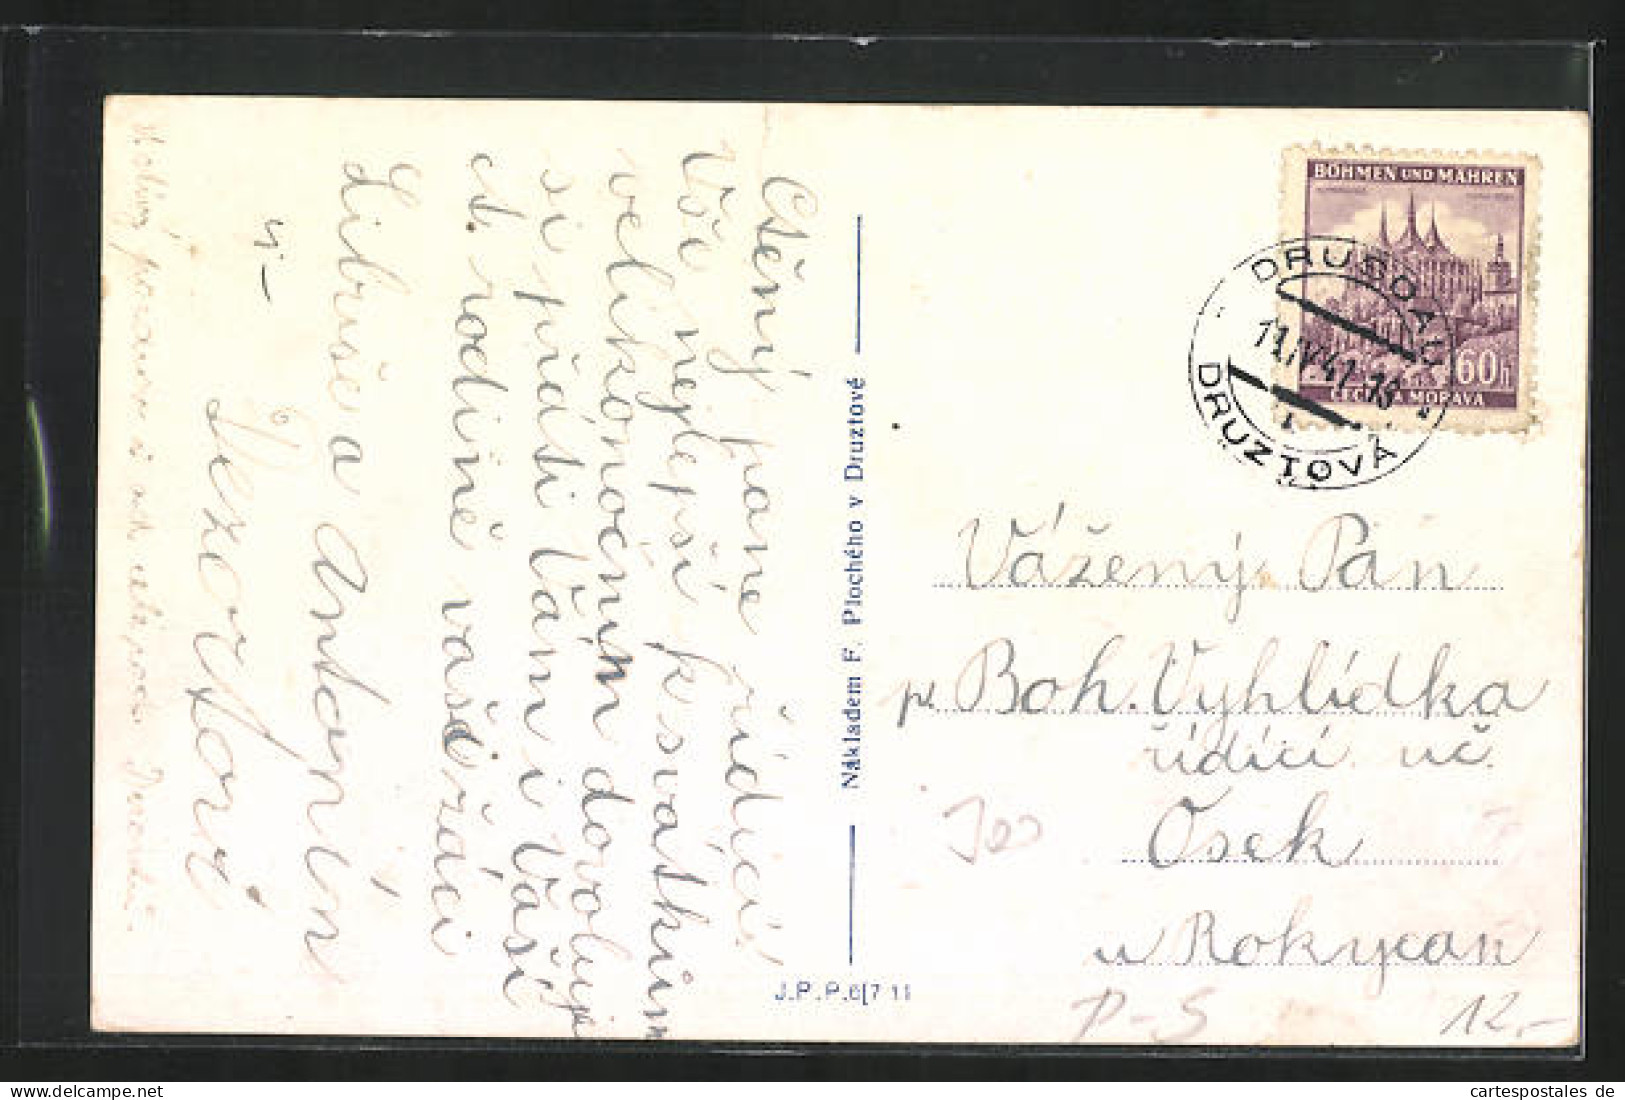 Ctěný pane řídící!
Vší nejlepší k svátkům
velikonočním dovoluje
si přáti Vám i Vaší
ct. rodině vaši žáci
Libuše a Antonín
4-
Nákladem F. Plochého v Druztové
J.P.P.6[7 11
BÖHMEN UND MÄHREN
60h
ČECHY A MORAVA
DRUSDAU
11.IV.41-13
DRUZTOVÁ
Vážený Pán
p Boh. Vyhlídka
řídící uč.
Osek
u Rokycan
P-S
12,-
cartespostales de